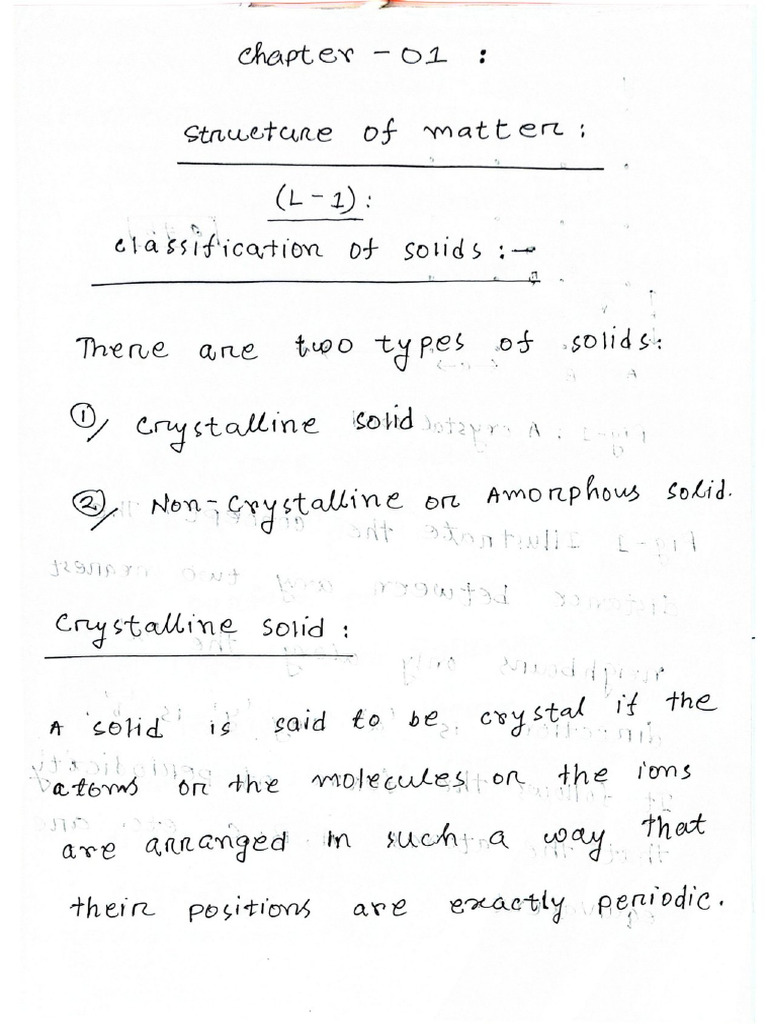 Chapter - 01 :
Structure of matter :
(L-1) :
Classification of solids :-
There are two types of solids:
1/ Crystalline solid
2/ Non-Crystalline or Amorphous solid.
Crystalline solid :
A solid is said to be crystal if the
atoms or the molecules or the ions
are arranged in such a way that
their positions are exactly periodic.